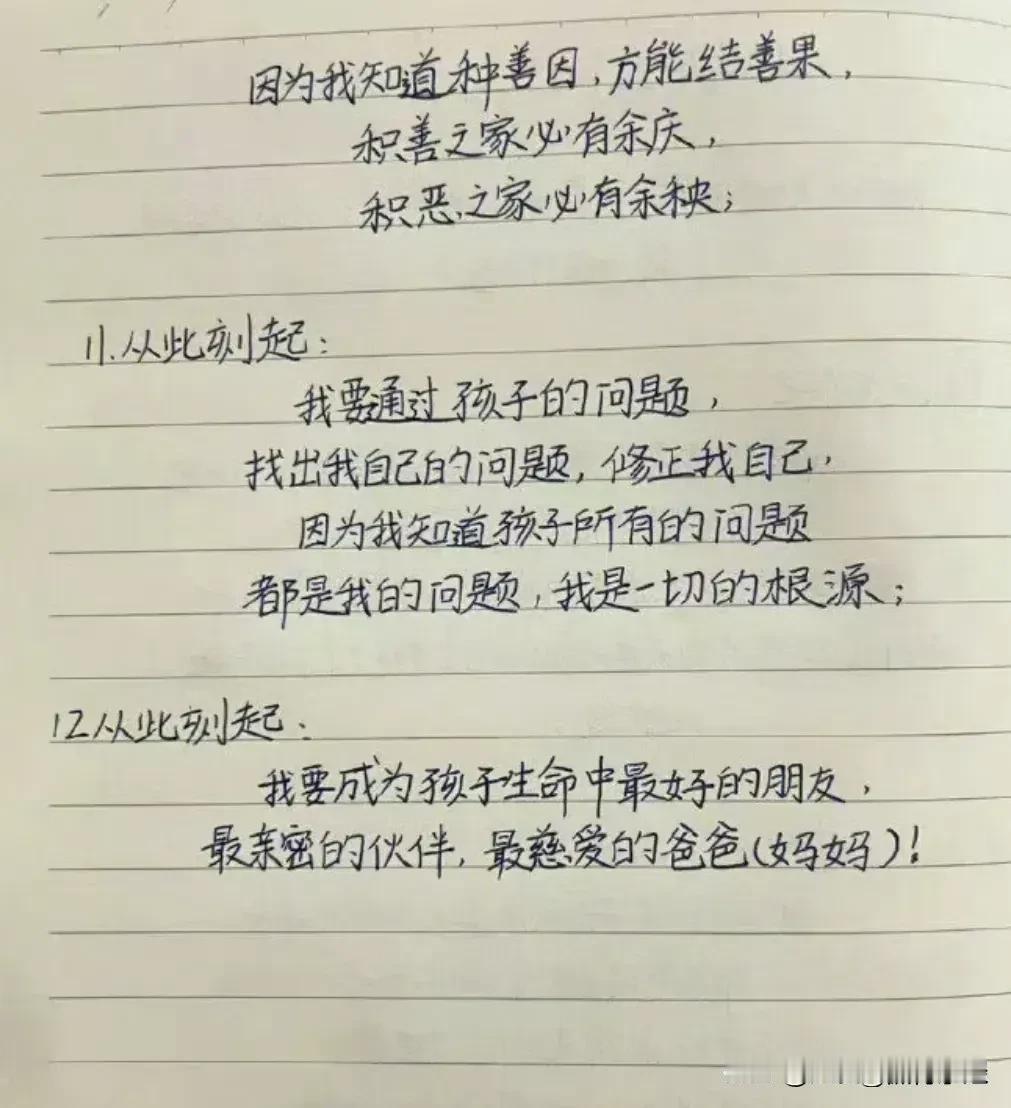 因为我知道种善因,方能结善果,
积善之家必有余庆,
积恶之家必有余秧;
11.从此刻起:
我要通过孩子的问题,
找出我自己的问题,修正我自己,
因为我知道孩子所有的问题
都是我的问题,我是一切的根源;
12.从此刻起:
我要成为孩子生命中最好的朋友,
最亲密的伙伴,最慈爱的爸爸(妈妈)!